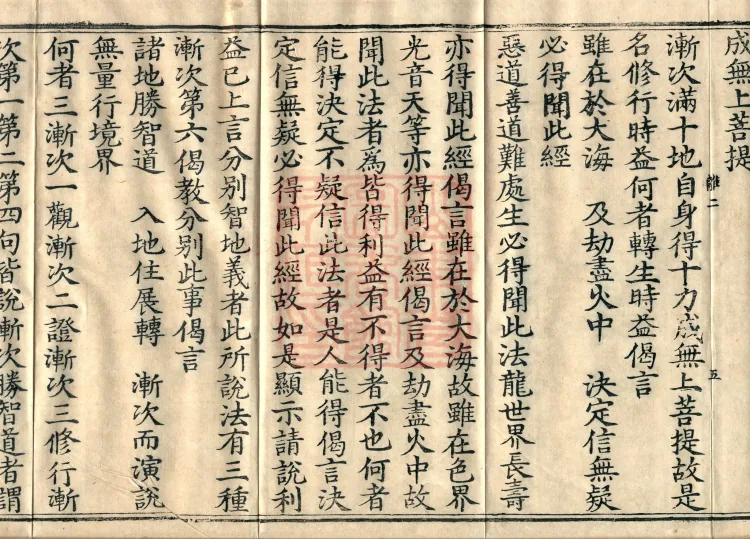 成無上菩提
離二 五
漸次滿十地自身得十力成無上菩提故是
名修行時益何者轉生時益偈言
雖在於大海 及劫盡火中 決定信無疑
必得聞此經
惡道善道難處生必得聞此法龍世界長壽
亦得聞此經偈言雖在於大海故雖在色界
光音天等亦得聞此經偈言及劫盡火中故
聞此法者為皆得利益有不得者不也何者
能得決定不疑信此法者是人能得偈言決
定信無疑必得聞此經故如是顯示請說利
益已上言分別智地義者此所說法有三種
漸次第六偈教分別此事偈言
諸地勝智道 入地住展轉 漸次而演說
無量行境界
何者三漸次一觀漸次二證漸次三修行漸
次第一第二第四句皆說漸次勝智道者謂